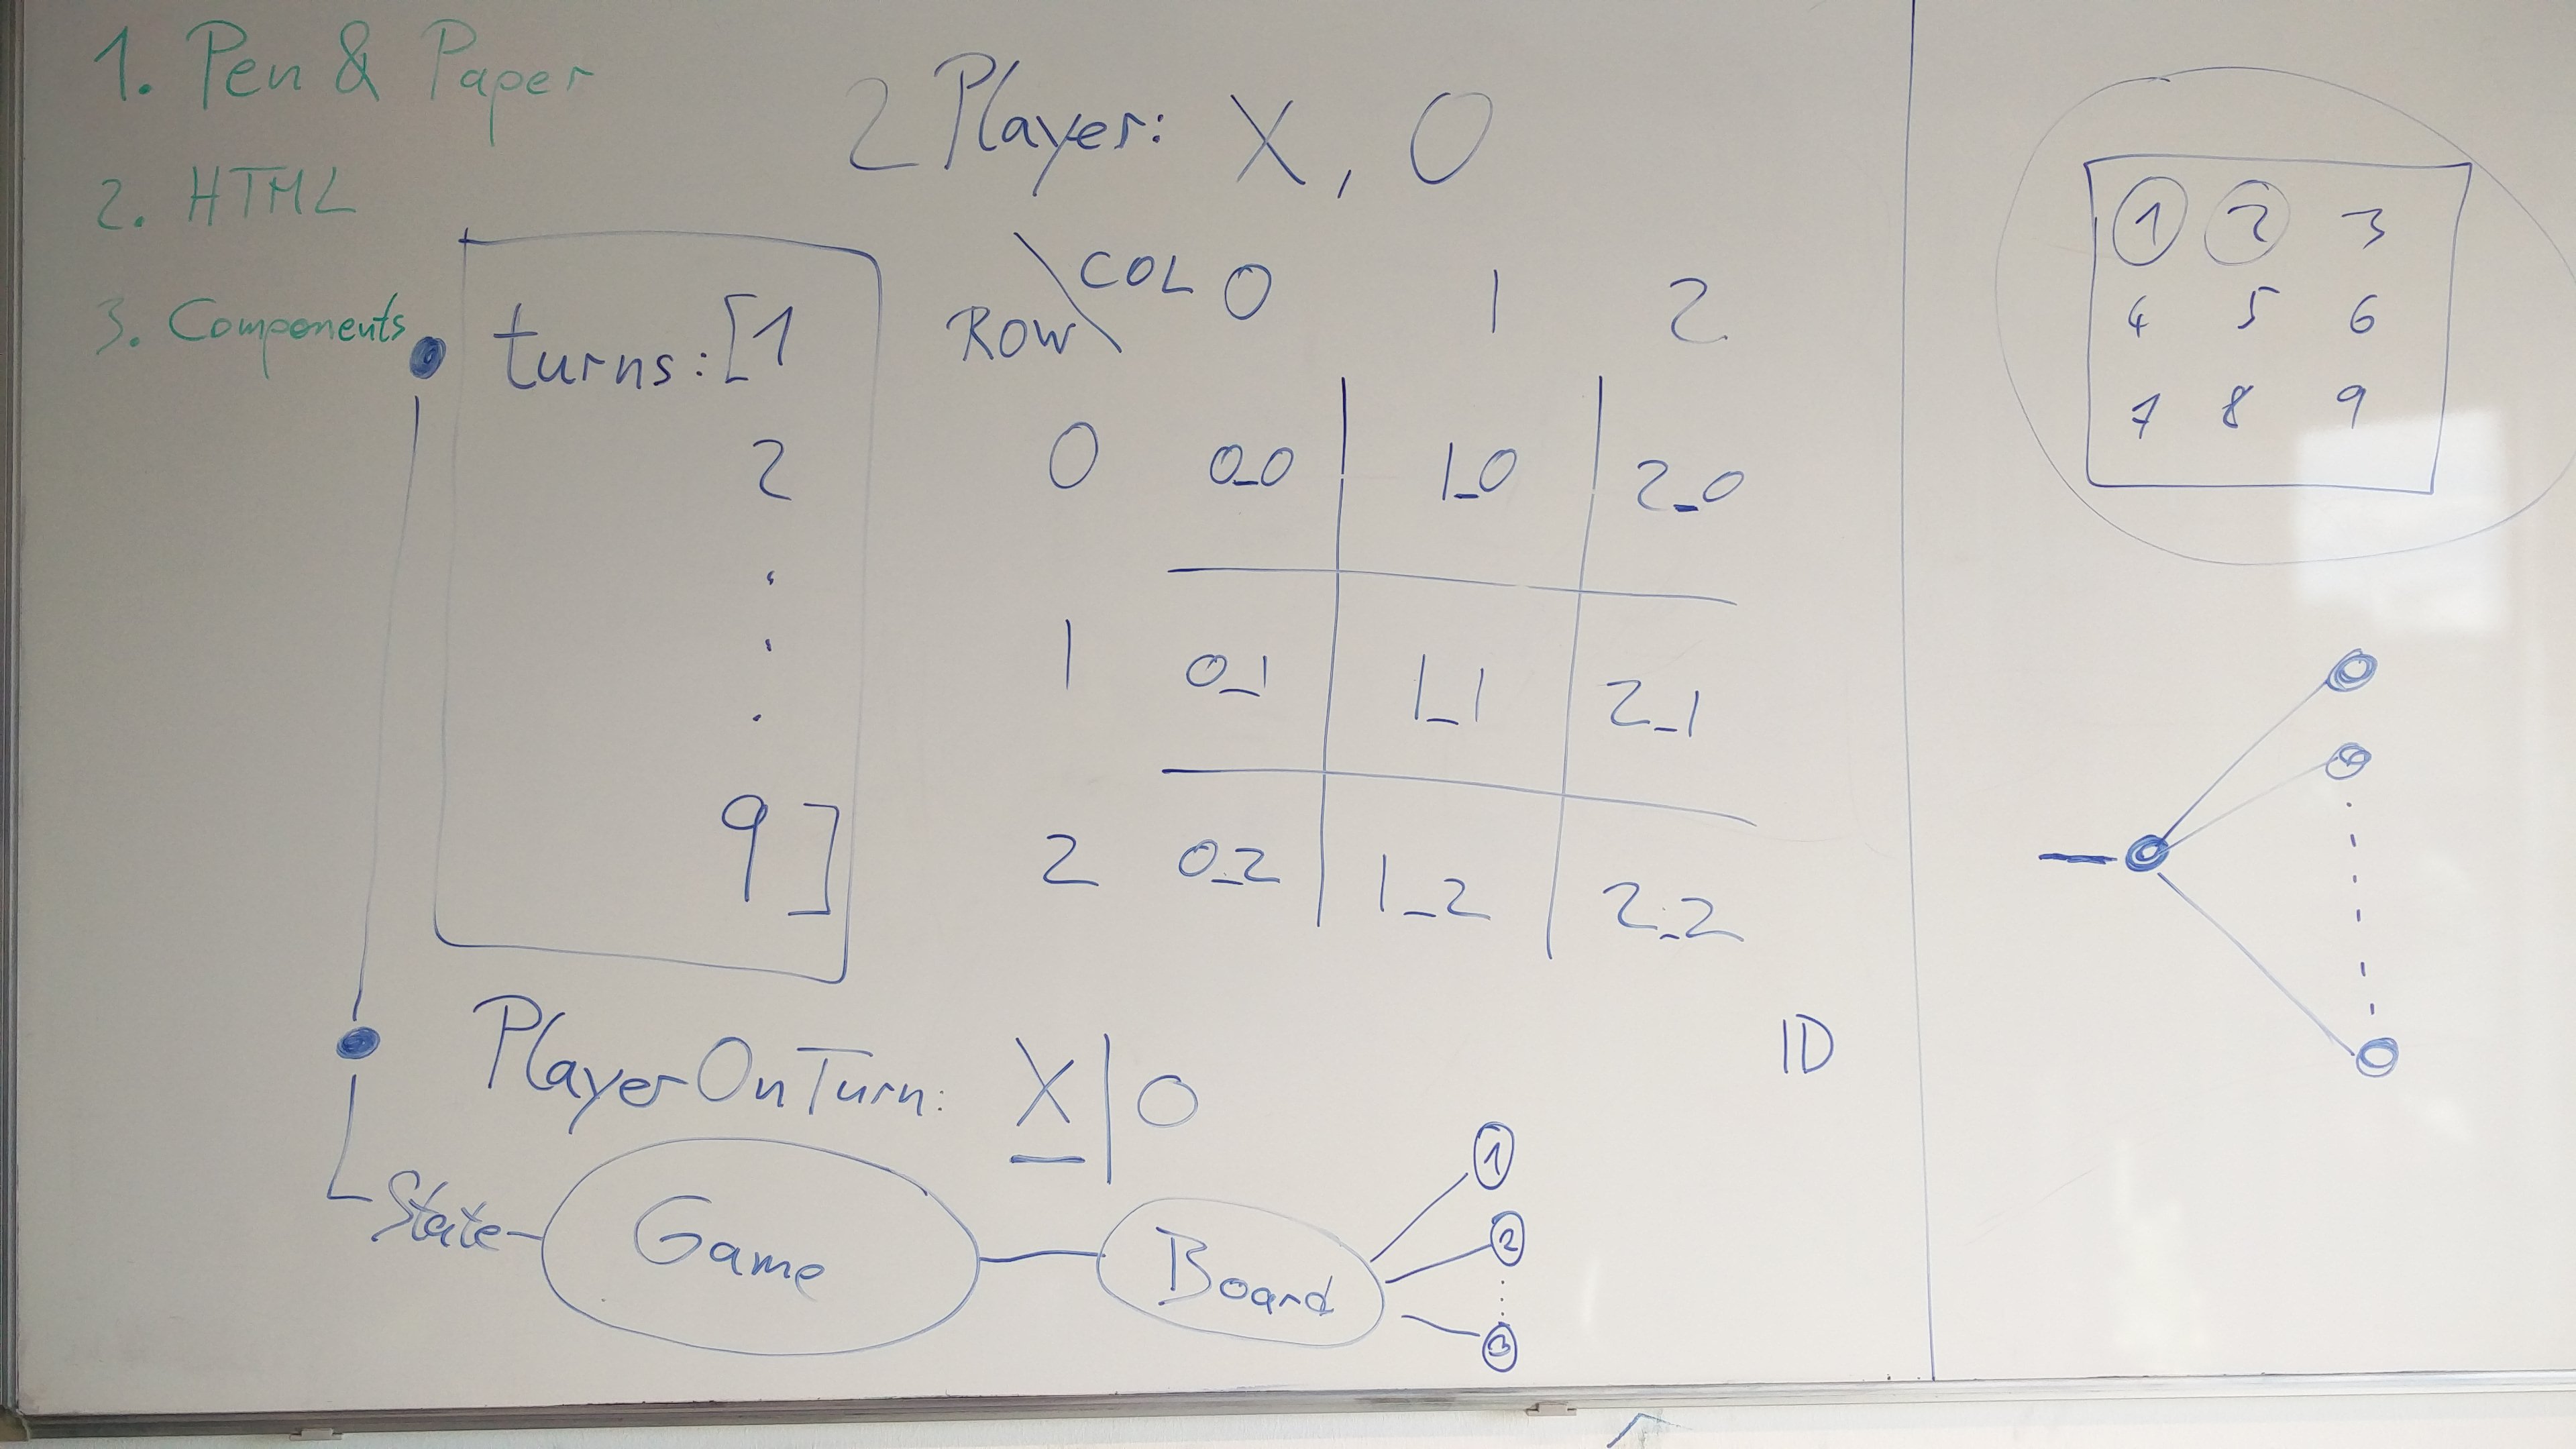 1. Pen & Paper
2. HTML
3. Components
2 Player: X, O
turns: [1
2
.
.
.
9]
ROW \ COL 0 1 2
0 0_0 1_0 2_0
1 0_1 1_1 2_1
2 0_2 1_2 2_2
PlayerOnTurn: X | O
ID
State
Game
Board
1
2
3
1 2 3
4 5 6
7 8 9